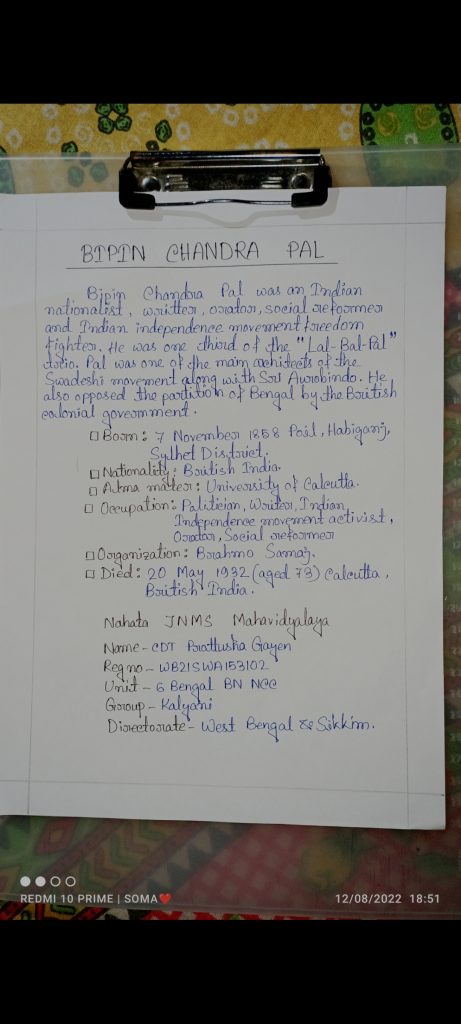 BIPIN CHANDRA PAL
Bipin Chandra Pal was an Indian
nationalist, writter, orator, social reformer
and Indian independence movement freedom
fighter. He was one third of the "Lal-Bal-Pal"
trio. Pal was one of the main architects of the
Swadeshi movement along with Sri Aurobindo. He
also opposed the partition of Bengal by the British
colonial government.
Born: 7 November 1858 Poil, Habiganj,
Sylhet District.
Nationality: British India.
Alma matter: University of Calcutta.
Occupation: Politician, Writer, Indian
Independence movement activist,
Orator, Social reformer
Organization: Brahmo Samaj.
Died: 20 May 1932 (aged 73) Calcutta,
British India.
Nahata JNMS Mahavidyalaya
Name - CDT Prattusha Gayen
Reg no - WB21SWA153102
Unit - 6 Bengal BN NCC
Group - Kalyani
Directorate - West Bengal & Sikkim.
REDMI 10 PRIME | SOMA❤️
12/08/2022 18:51